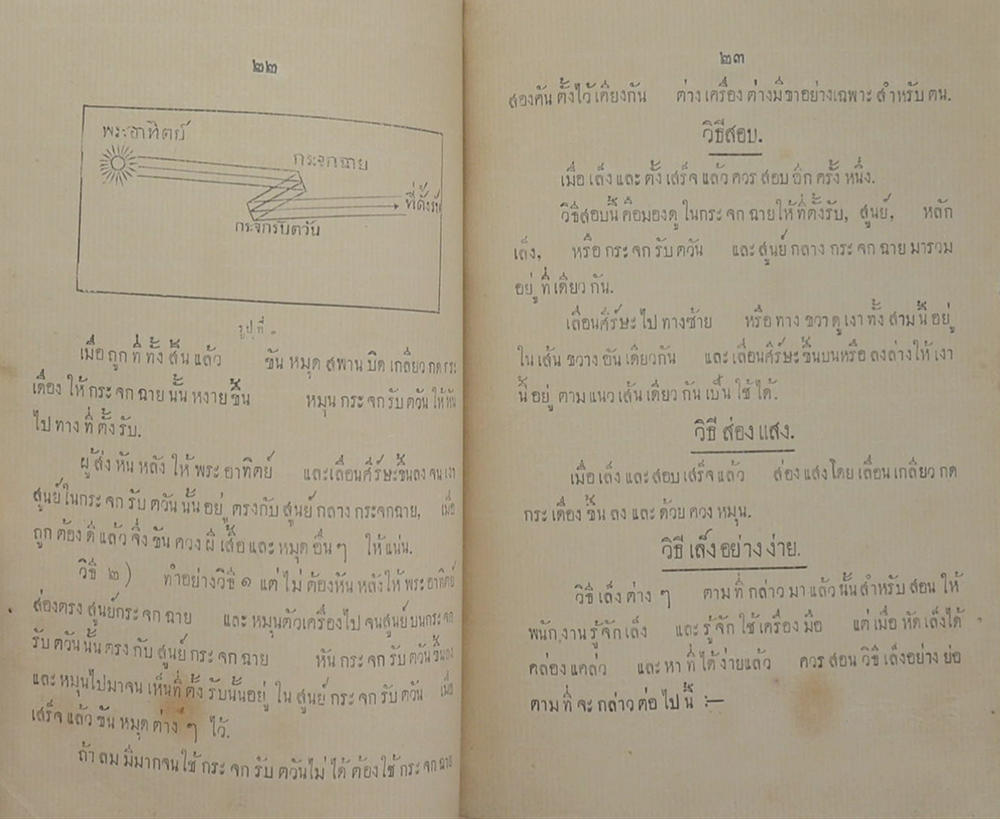 ๒๒
พระอาทิตย์
กระจกฉาย
ที่ตั้งรับ
กระจกรับตวัน
รูปที่
เมื่อถูกที่ทั้งสั้นแล้ว ขันหมุดสพานบิดเกลียวกดกระ
เดื่องให้กระจกฉายนั้นหงายขึ้น หมุนกระจกรับตวันให้หัน
ไปทางที่ตั้งรับ.
ผู้ส่งหันหลังให้พระอาทิตย์ และเลื่อนศีร์ษะขึ้นลงจนเงา
สูนย์ในกระจกรับตวันนั้นอยู่ตรงกับสูนย์กลางกระจกฉาย, เมื่อ
ถูกต้องดีแล้วจึ่งขันควงผีเสื้อและหมุดอื่นๆ ให้แน่น.
วิธี ๒) ทำอย่างวิธี ๑ แต่ไม่ต้องหันหลังให้พระอาทิตย์
ส่องตรงสูนย์กระจกฉาย และหมุนตัวเครื่องไปจนสูนย์บนกระจก
รับตวันนั้นตรงกับสูนย์กระจกฉาย หันกระจกรับตวันขึ้นลง
และหมุนไปมาจนเห็นที่ตั้งรับนั้นอยู่ในสูนย์กระจกรับตวัน เมื่อ
เสร็จแล้วขันหมุดต่างๆ ไว้.
ถ้าลมมีมากจนใช้กระจกรับตวันไม่ได้ต้องใช้กระจกฉาย
๒๓
สองคันตั้งไว้เคียงกัน ต่างเครื่องต่างมีขาอย่างเฉพาะสำหรับตน.
วิธีสอบ.
เมื่อเล็งและตั้งเสร็จแล้วควรสอบอีกครั้งหนึ่ง.
วิธีสอบนี้คือมองดูในกระจกฉายให้ที่ตั้งรับ, สูนย์, หลัก
เล็ง, หรือกระจกรับตวัน และสูนย์กลางกระจกฉายมารวม
อยู่ที่เดียวกัน.
เลื่อนศีร์ษะไปทางซ้าย หรือทางขวาดูเงาทั้งสามนี้อยู่
ในเส้นขวางอันเดียวกัน และเลื่อนศีร์ษะขึ้นบนหรือลงล่างให้เงา
นี้อยู่ตามแนวเส้นเดียวกันเป็นใช้ได้.
วิธีส่องแสง.
เมื่อเล็งและสอบเสร็จแล้ว ส่องแสงโดยเลื่อนเกลียวกด
กระเดื่องขึ้นลงและด้วยควงหมุน.
วิธีเล็งอย่างง่าย.
วิธีเล็งต่างๆ ตามที่กล่าวมาแล้วนั้นสำหรับสอนให้
พนักงานรู้จักเล็ง และรู้จักใช้เครื่องมือ แต่เมื่อหัดเล็งได้
คล่องแคล่ว และหาที่ได้ง่ายแล้ว ควรสอนวิธีเล็งอย่างย่อ
ตามที่จะกล่าวต่อไปนี้ :—